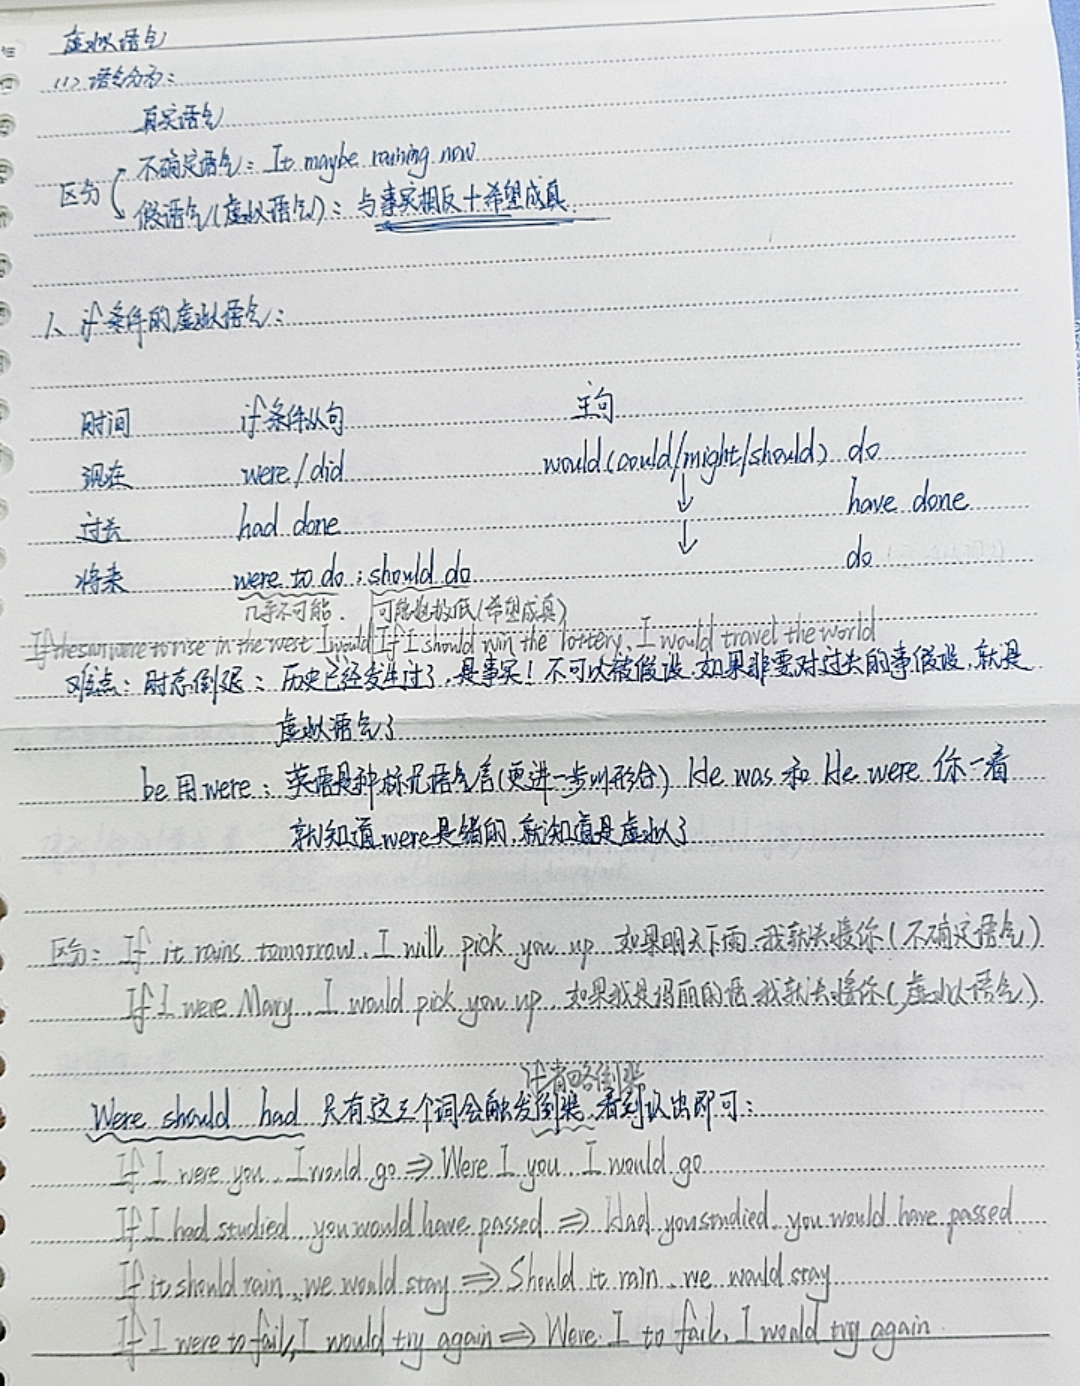 虚拟语气
(1) 语气分为:
真实语气
不确定语气: It maybe raining now
区分
假语气(虚拟语气): 与事实相反+希望成真
1、if条件的虚拟语气:
时间 if条件从句 主句
现在 were/did would(could/might/should) do
过去 had done ↓ have done
将来 were to do ; should do ↓ do
几乎不可能. 可能性极低(希望成真)
If the sun were to rise in the west I would If I should win the lottery, I would travel the world
难点: 时态倒退: 历史已经发生过了,是事实!不可以被假设.如果非要对过去的事假设,就是
虚拟语气了
be用were: 英语是种标记语言(更进一步叫形合) He was 和 He were 你一看
就知道were是错的,就知道是虚拟了
区分: If it rains tomorrow, I will pick you up 如果明天下雨,我就去接你(不确定语气)
If I were Mary, I would pick you up 如果我是玛丽的话,我就去接你(虚拟语气)
if省略倒装
Were should had 只有这三个词会触发倒装,看到认出即可:
If I were you, I would go ⇒ Were I you, I would go
If I had studied, you would have passed ⇒ Had you studied, you would have passed
If it should rain, we would stay ⇒ Should it rain, we would stay
If I were to fail, I would try again ⇒ Were I to fail, I would try again